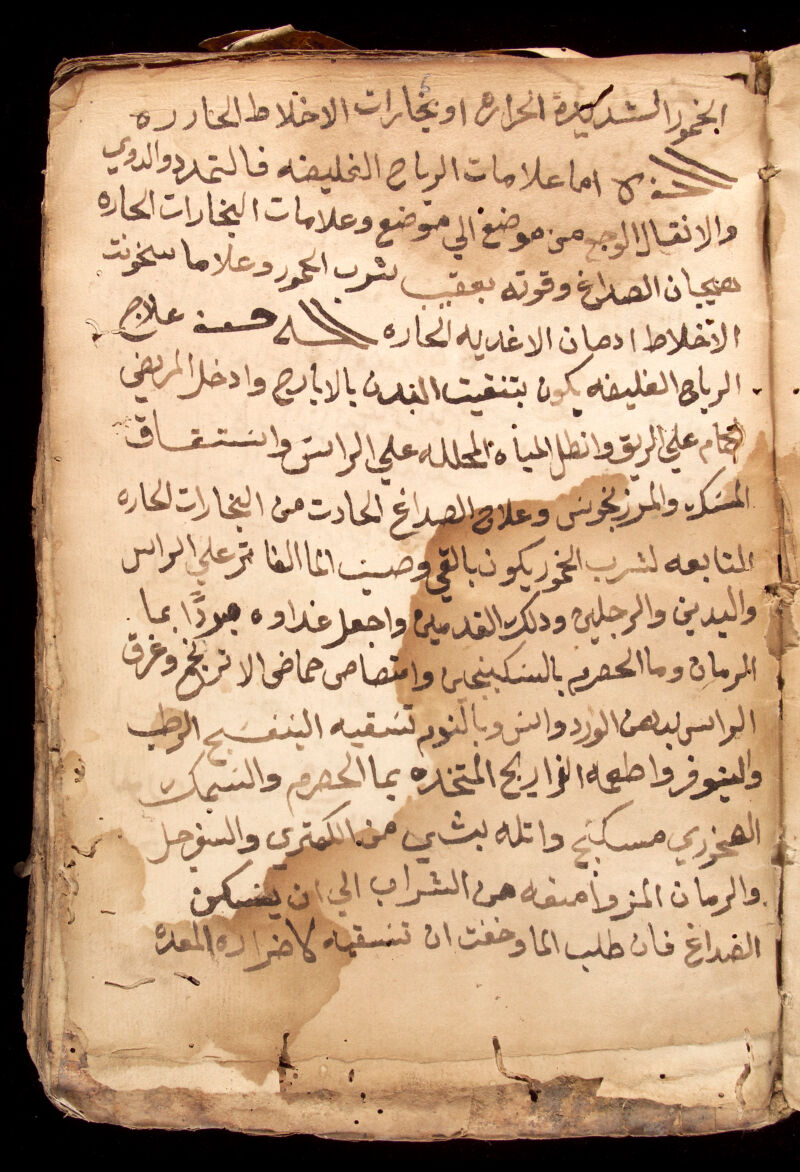 الخمور الشديدة الحراره او بخارات الاخلاط الحارره
صفه اما علامات الرياح الغليضه فالتمدد والدوي
والانتقال الوجع من موضع الي موضع وعلامات البخارات الحاره
هيجان الصداغ وقوته بعقيب شرب الخمور وعلاما سخونت
الاخلاط ادمان الاغديه الحاره صفه علاج
الرياح الغليضه يكون بتنقيت البدن بالايارج وادخل المريض
الحمام علي الريق وانطل المياه المحلله علي الراس واستنشاق
المسك والمرزنجوش وعلاج الصداغ الحادت من البخارات الحاره
المتابعه لشرب الخمور يكون بالقي وصب الما الفاتر علي الراس
واليدين والرجلين ودلك القدمين واجعل غداوه مبردًا بما
الرمان وما الحصرم بالسكنجبين وامتصاص حماض الاترنج وغرق
الراس بدهن الورد والنوم تسقيه البنفسج الرطب
والنيوفر واطعمه الفراريج المتخده بما الحصرم والسمك
الصخوري مسكبج واتله بشي من الكمتري والسفرجل
والرمان المز وامنعه من الشراب الي ان يسكن
الصداغ فان طلب الما وخفت ان تسقيه لاضراره المعده